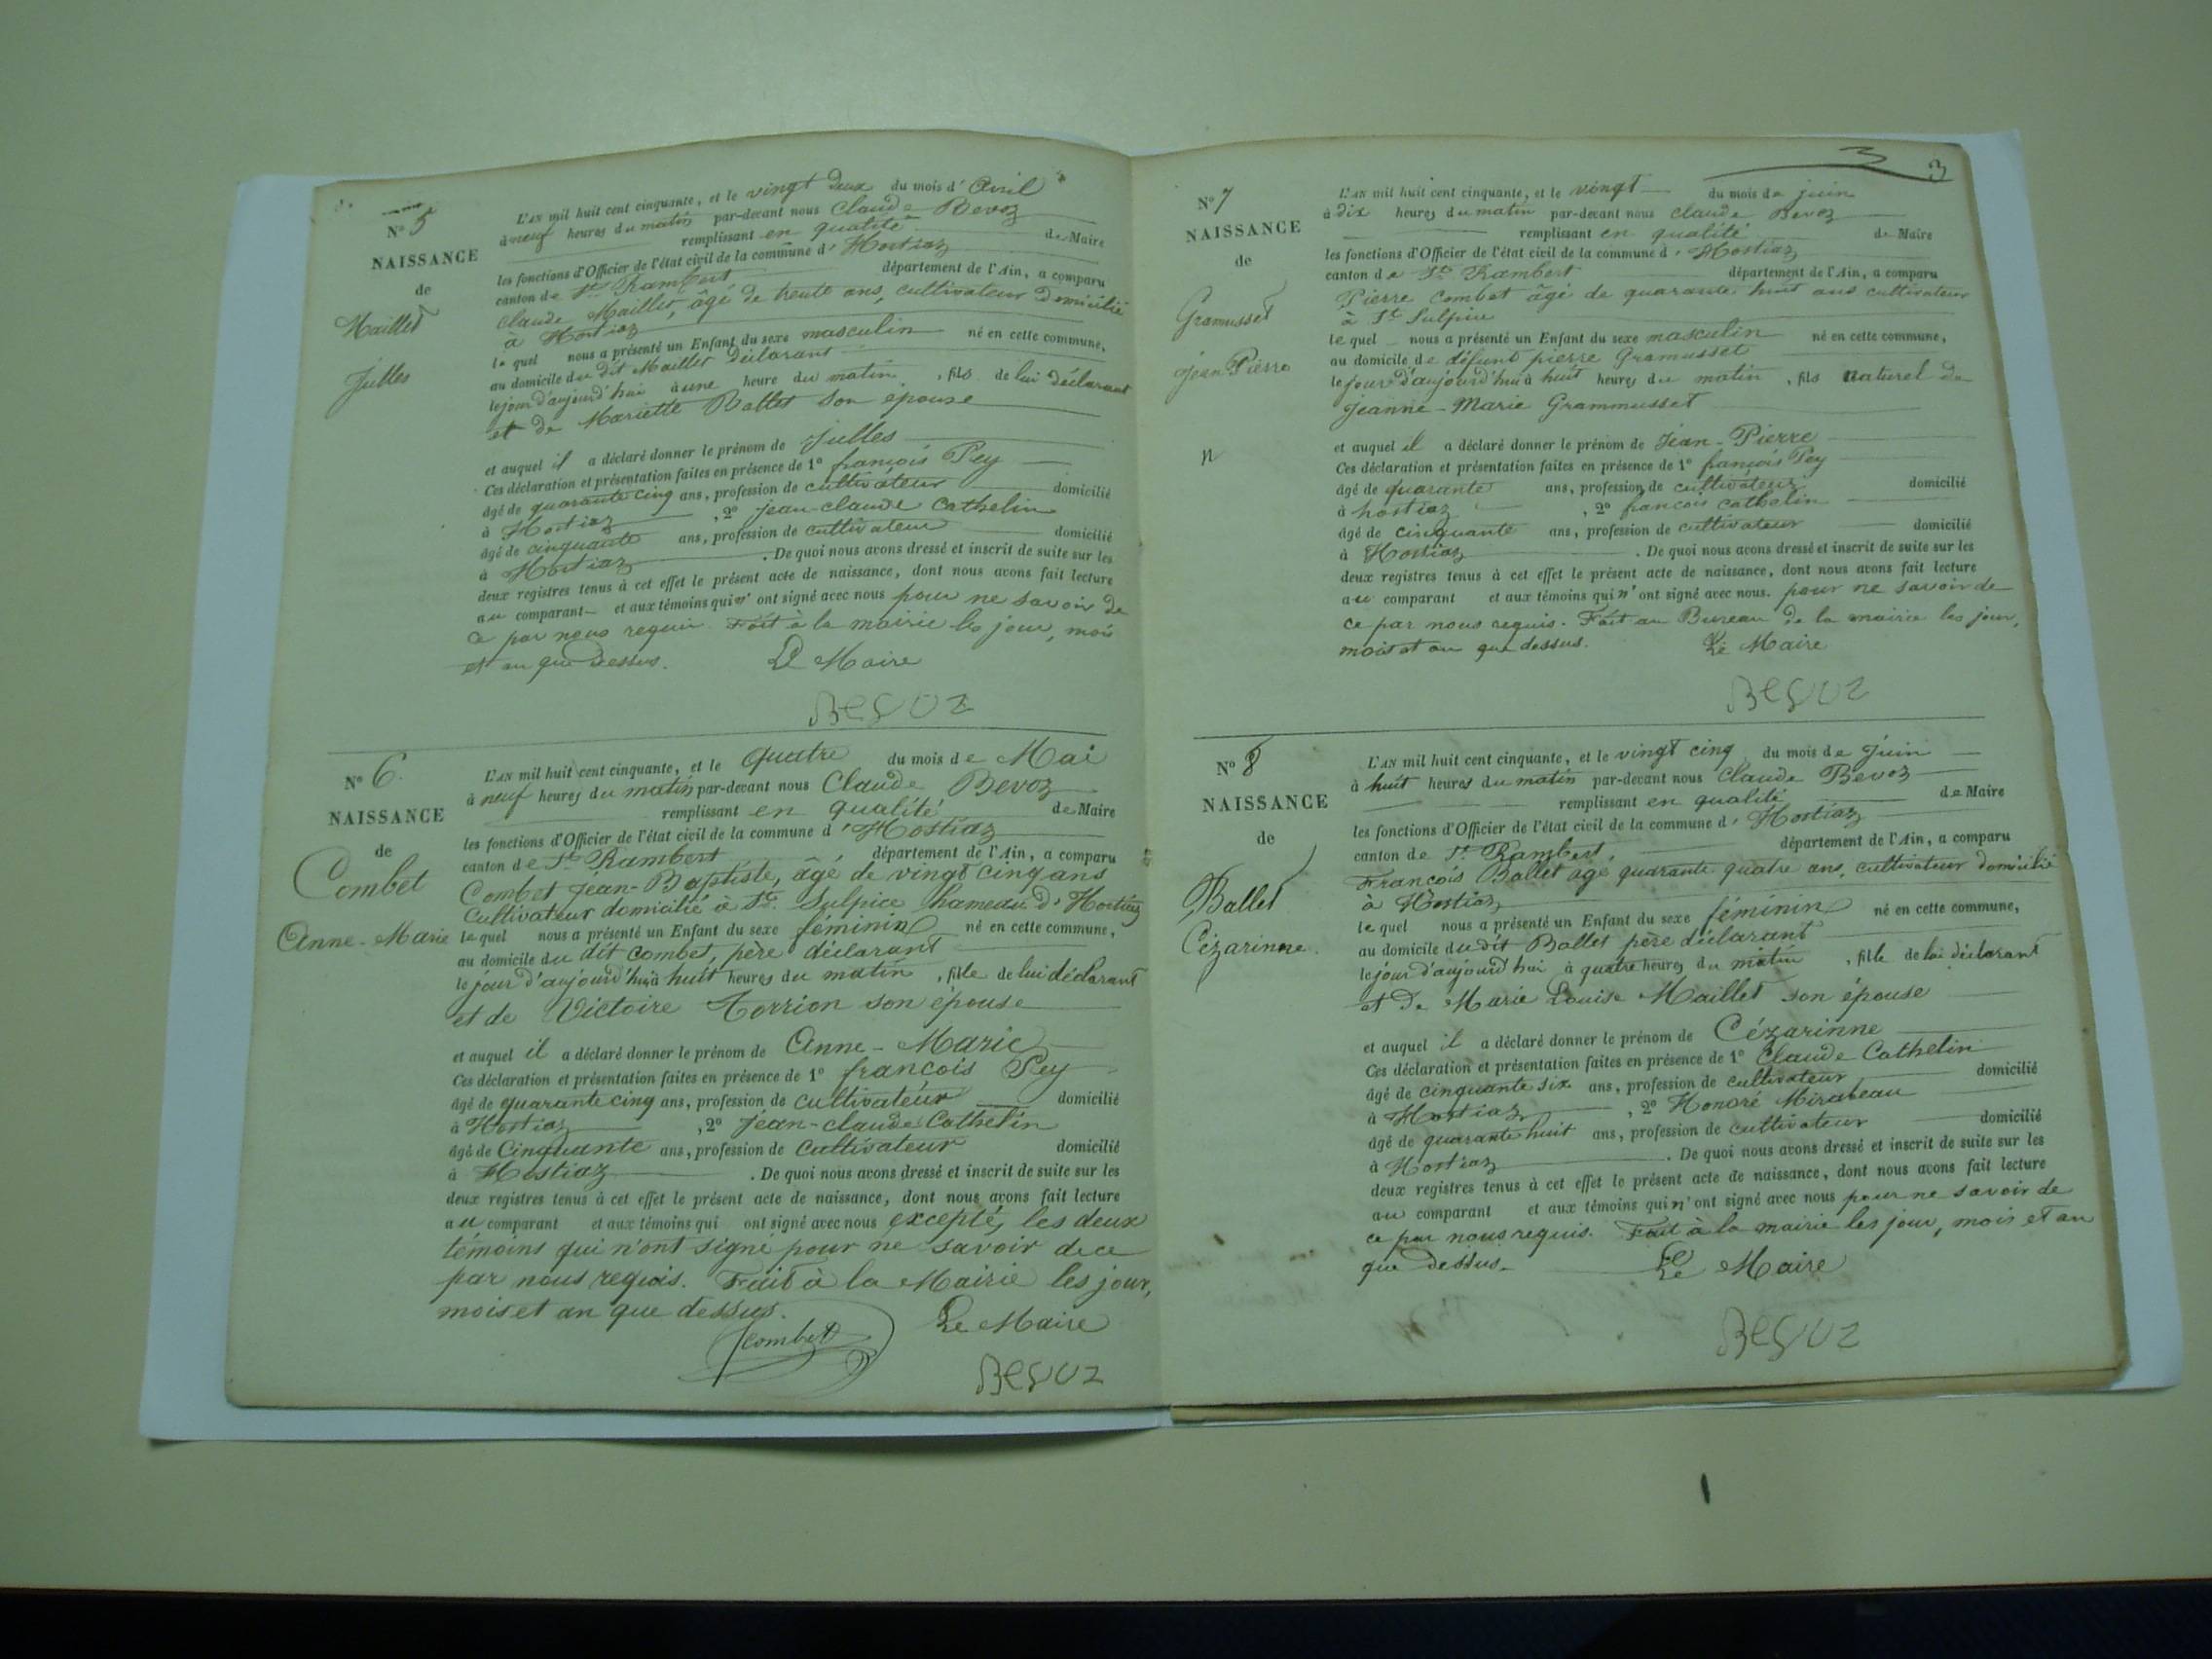 N° 5
NAISSANCE
de
Maillet
Julles
L'AN mil huit cent cinquante, et le vingt deux du mois d' Avril
à neuf heures du matin par-devant nous Claude Bevoz
remplissant en qualité de Maire
les fonctions d'Officier de l'état civil de la commune d' Hostiaz
canton de St Rambert département de l'Ain, a comparu
Claude Maillet, âgé de trente ans, cultivateur domicilié
à Hostiaz
le quel nous a présenté un Enfant du sexe masculin né en cette commune,
au domicile du dit Maillet déclarant
le jour d'aujourd'hui à une heure du matin, fils de lui déclarant
et de Mariette Ballet son épouse
et auquel il a déclaré donner le prénom de Julles
Ces déclaration et présentation faites en présence de 1° françois Pey
âgé de quarante cinq ans, profession de cultivateur domicilié
à Hostiaz, 2° jean-claude Cathelin
âgé de cinquante ans, profession de cultivateur domicilié
à Hostiaz. De quoi nous avons dressé et inscrit de suite sur les
deux registres tenus à cet effet le présent acte de naissance, dont nous avons fait lecture
au comparant et aux témoins qui n' ont signé avec nous pour ne savoir de
ce par nous requis. Fait à la mairie les jour, mois
et an que dessus. Le Maire
Bevoz
N° 6.
NAISSANCE
de
Combet
Anne-Marie
L'AN mil huit cent cinquante, et le quatre du mois de Mai
à neuf heures du matin par-devant nous Claude Bevoz
remplissant en qualité de Maire
les fonctions d'Officier de l'état civil de la commune d' Hostiaz
canton de St Rambert département de l'Ain, a comparu
Combet Jean-Baptiste, âgé de vingt cinq ans
Cultivateur domicilié à St. Sulpice hameau d'Hostiaz
le quel nous a présenté un Enfant du sexe féminin né en cette commune,
au domicile du dit Combet, père déclarant
le jour d'aujourd'hui à huit heures du matin, fille de lui déclarant
et de Victoire Torrion son épouse
et auquel il a déclaré donner le prénom de Anne-Marie
Ces déclaration et présentation faites en présence de 1° françois Pey
âgé de quarante cinq ans, profession de cultivateur domicilié
à Hostiaz, 2° Jean-claude Cathelin
âgé de Cinquante ans, profession de Cultivateur domicilié
à Hostiaz. De quoi nous avons dressé et inscrit de suite sur les
deux registres tenus à cet effet le présent acte de naissance, dont nous avons fait lecture
au comparant et aux témoins qui ont signé avec nous excepté, les deux
témoins qui n'ont signé pour ne savoir de ce
par nous requis. Fait à la Mairie les jour,
mois et an que dessus.
Combet Le Maire
Bevoz
3 3
N° 7
NAISSANCE
de
Gramusset
Jean Pierre
n
L'AN mil huit cent cinquante, et le vingt du mois de juin
à dix heures du matin par-devant nous claude Bevoz
remplissant en qualité de Maire
les fonctions d'Officier de l'état civil de la commune d' Hostiaz
canton de St Rambert département de l'Ain, a comparu
Pierre Combet âgé de quarante huit ans cultivateur
à St Sulpice
le quel nous a présenté un Enfant du sexe masculin né en cette commune,
au domicile de défunt pierre Gramusset
le jour d'aujourd'hui à huit heures du matin, fils naturel de
Jeanne-Marie Grammusset
et auquel il a déclaré donner le prénom de Jean-Pierre
Ces déclaration et présentation faites en présence de 1° françois Pey
âgé de quarante ans, profession de cultivateur domicilié
à hostiaz, 2° francois cathelin
âgé de cinquante ans, profession de cultivateur domicilié
à Hostiaz. De quoi nous avons dressé et inscrit de suite sur les
deux registres tenus à cet effet le présent acte de naissance, dont nous avons fait lecture
au comparant et aux témoins qui n' ont signé avec nous. pour ne savoir de
ce par nous requis. Fait au Bureau de la mairie les jour,
mois et an que dessus. Le Maire
Bevoz
N° 8
NAISSANCE
de
Ballet
Cézarinne.
L'AN mil huit cent cinquante, et le vingt cinq du mois de Juin
à huit heures du matin par-devant nous Claude Bevoz
remplissant en qualité de Maire
les fonctions d'Officier de l'état civil de la commune d' Hostiaz
canton de St. Rambert, département de l'Ain, a comparu
François Ballet âgé quarante quatre ans, cultivateur domicilié
à Hostiaz
le quel nous a présenté un Enfant du sexe féminin né en cette commune,
au domicile du dit Ballet père déclarant
le jour d'aujourd'hui à quatre heures du matin, fille de lui déclarant
et de Marie Louise Maillet son épouse
et auquel il a déclaré donner le prénom de Cézarinne
Ces déclaration et présentation faites en présence de 1° Claude Cathelin
âgé de cinquante six ans, profession de cultivateur domicilié
à Hostiaz, 2° Honoré Mirabeau
âgé de quarante huit ans, profession de cultivateur domicilié
à Hostiaz. De quoi nous avons dressé et inscrit de suite sur les
deux registres tenus à cet effet le présent acte de naissance, dont nous avons fait lecture
au comparant et aux témoins qui n' ont signé avec nous pour ne savoir de
ce par nous requis. Fait à la mairie les jour, mois et an
que dessus. Le Maire
Bevoz